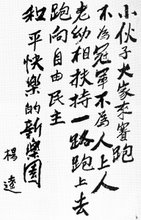 小伙子大家来賽跑
不為冠軍不為人上人
老幼相扶持一路跑上去
跑向自由民主
和平快樂的新樂園
楊逵